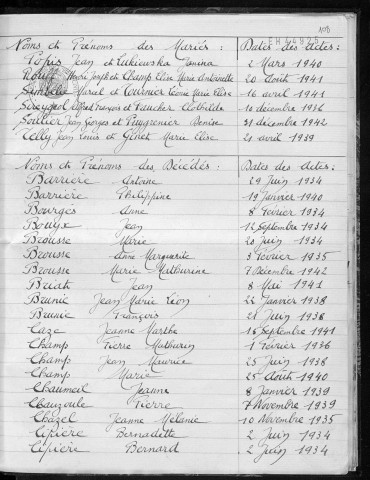 108
Noms et Prénoms des Mariés: Dates des Actes:
Popis Jean et Lukiewska Janina 2 Mars 1940
Rouff Henri Joseph et Champ Elise Marie Antoinette 20 Août 1941
Marcel et Tournier Léonie Marie Elise 16 avril 1941
Sireygeol Alfred François et Faucher Clothilde 10 décembre 1936
Soulier Jean Georges et Puygrenier Denise 31 décembre 1942
Jean Louis et Ginet Marie Elise 21 avril 1939
Noms et Prénoms des Décédés: Dates des actes:
Barrière Antoine 29 Juin 1934
Barrière Philippine 19 Janvier 1940
Bourges Anne 8 Février 1934
Bouyx Jean 12 Septembre 1934
Brousse Marie 20 Juin 1934
Brousse Anne Marguerite 3 Février 1935
Brousse Marie Mathurine 7 Décembre 1942
Briat Jean 8 Mai 1941
Brunie Jean Marie Léon 22 Janvier 1938
Brunie François 21 Juin 1938
Caze Jeanne Marthe 16 Septembre 1941
Champ Pierre Mathurin 1 Février 1936
Champ Jean Maurice 25 Juin 1938
Champ Marie 25 Août 1940
Chaumeil Jeanne 8 Janvier 1939
Chauzoule Pierre 7 Novembre 1939
Chazel Jeanne Mélanie 10 Novembre 1935
Cipière Bernadette 2 Juin 1934
Cipière Bernard 2 Juin 1934